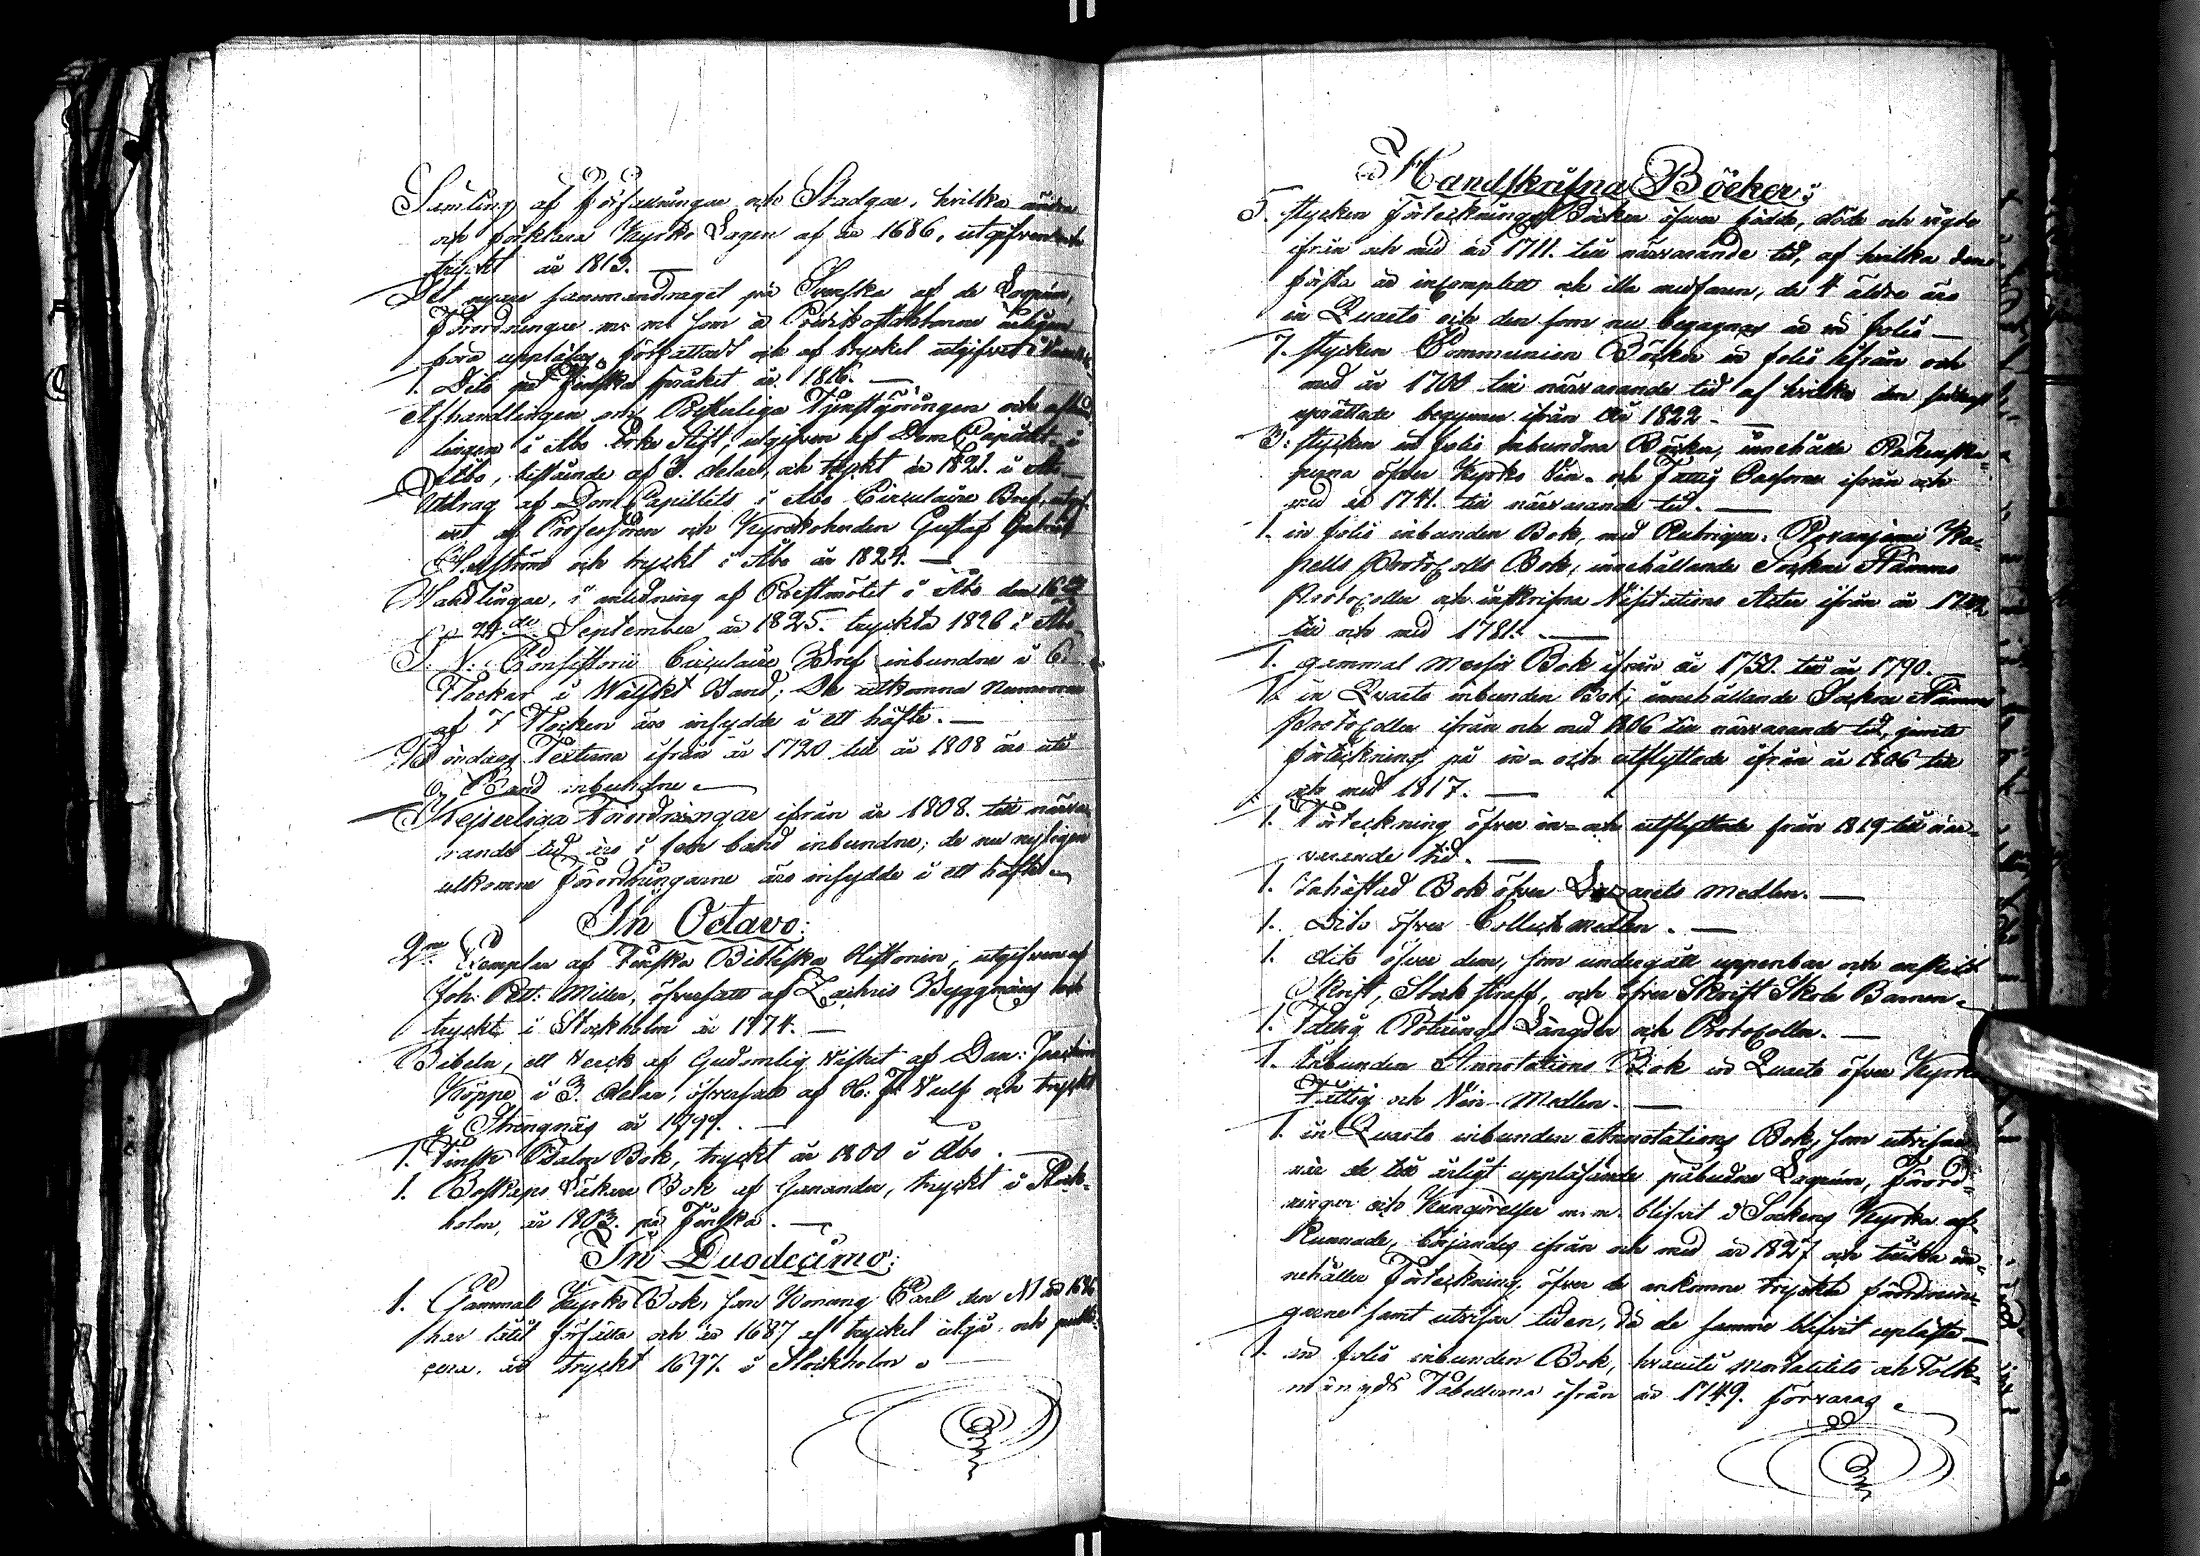 Samling af Författningar och Stadgar, hvilka ändra
och förklara Kyrko Lagen af år 1686, utgifven och
tryckt år 1813.
Det nyare sammandraget på Svenska af de Lagrum,
Förordningar m: m: som å Predikostolarne årligen
böra uppläsas, författadt och af trycket utgifvet i
1. Dito på Finska språket år 1816.
Afhandlingen om Presterliga Tjenstgöringen och
lingen i Abo Erke Stift, utgifven af Dom Capitlet i
Åbo, bestående af 3. delar, och tryckt år 1821. i Abo
Utdrag af Dom Capitlets i Abo Circulaire Bref,
af Professoren och Kyrkoherden Gustaf Gabriel
och tryckt i Abo år 1824.
Handlingar, i anledning af Prestmötet i Åbo den
24de September år 1825. tryckta 1826 i Abo
Consistorii Circulaire Bref inbundne i 6
Flockar i Wälskt Band; De utkomna Numrorne
af 7 Flocken äro insydde i ett häfte.
Böndags Texterna ifrån år 1720 till år 1808 äro uti
6 Band inbundne
Kejserliga Förordningar ifrån år 1808. till närva-
rande tid äro i fem band inbundne; de nu nyligen
utkomne Förordningarne äro insydde i ett häfte
In Octavo:
2ne Exemplar af Finska Bibliska Historien, utgifven af
Joh: Pett: Miller, öfversatt af Zachris Byggmäns och
tryckt i Stockholm år 1774.
Bibeln, ett Werck af Gudomlig Wishet af Dan: Joachim
Köppe i 3. delar, öfversatt af H: F: Wulf och tryckt
i Strengnäs år 1799.
1. Finsk Psalm Bok, tryckt år 1800 i Abo.
1. Boskaps Läkare Bok af Ganander, tryckt i Stock-
holm, år 1803. på Finska.
In Duodecimo:
1. Gammal Kyrko Bok, som Konung Carl den XI år
har låtit författa och år 1687 af trycket utgå, och publi-
cera, är tryckt 1697. i Stockholm
Handskrifna Böcker:
5. stycken Förtecknings Böcker öfver födde, döde och vigde
ifrån och med år 1711. till närvarande tid, af hvilka den
första är incomplett och illa medfaren, de 4 äldre äro
in Quarto och den som nu begagnas är in folio
7. stycken Communion Böcker in folio ifrån och
med år 1700 till närvarande tid af hvilka den sednast
uprättade begynner ifrån År 1822.
3. stycken in folio inbundna Böcker, innehålla Räkenska-
perna öfver Kyrko Vin- och Fattig Cassorne ifrån och
med år 1741. till närvarande tid.
1. in folio inbunden Bok, med Rubriquen: Rovanjemi Ka-
pells Protocolls Bok, innehållande Sockne Stämmo
Protocoller och inskrifna Visitations Acter ifrån år
till och med 1781.
1. gammal Bok ifrån år 1750. till år 1790.
1. in Quarto inbunden Bok, innehållande Sockne Stämmo
Protocoller ifrån och med 1806 till närvarande tid, jemte
förteckning på in- och utflyttade ifrån år 1806 till
och med 1817.
1. Förteckning öfver in- och utflyttade från 1819 till när-
varande tid.
1. Inhäftad Bok öfver Lazarets Medlen.
1. Dito öfver Collect Medlen.
1. dito öfver dem, som undergått uppenbar och enskild
Skrift, Stock straff, och öfver Skrift Skole Barnen
1. Fattig Roterings Längder och Protocoller.
1. Inbunden Annotations Bok in Quarto öfver Kyrko
Fattig och Vin-Medlen.
1. in Quarto inbunden Annotations Bok, som utvisar
när de till årligt uppläsande påbudne Lagrum, Förord-
ningar och Kungörelser m: m: blifvit i Sockens Kyrka af-
kunnade, börjandes ifrån och med år 1827 och tillika in-
nehåller Förteckning öfver de ankomne tryckta förordnin-
garne samt utvisar tiden, då de samme blifvit upläste
1. in folio inbunden Bok, hvaruti Mortalitets och Folk-
mängds Tabellerna ifrån år 1749. förvaras